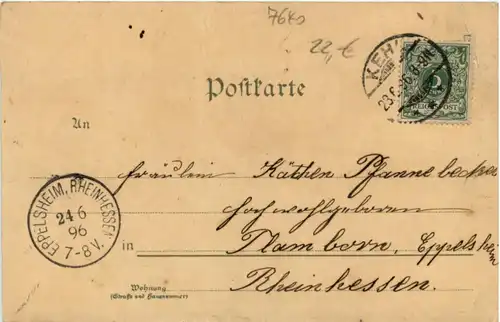 7640
22,-€
KEHL
23.6.96.8-9N.
REICHSPOST
Postkarte
An
Fräulein Käthen Pfannebecker
hochwohlgeboren
in Flamborn, Eppelsheim
Rheinhessen.
EPPELSHEIM, RHEINHESSEN
24 6
96
7-8V.
Wohnung
(Straße und Hausnummer)